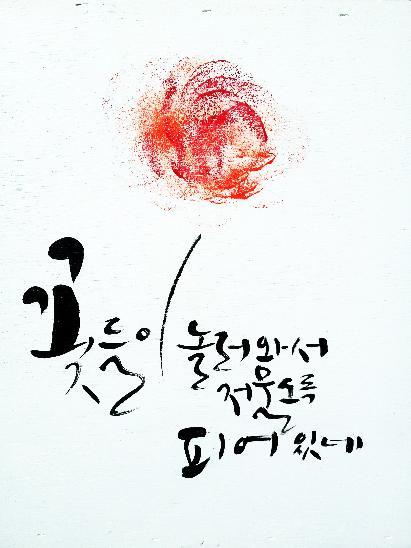 꽃들이 놀러와서
저물도록
피어 있네